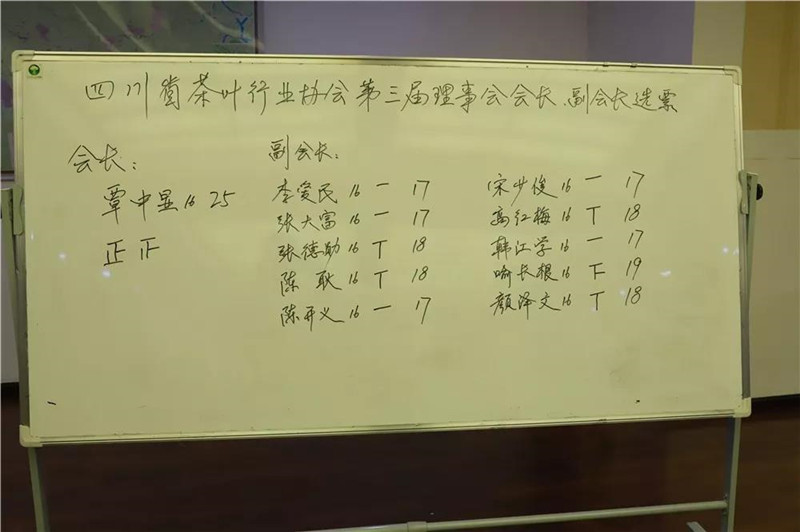 四川省茶叶行业协会第三届理事会会长、副会长选票
会长:
覃中显16 25
正正
副会长:
李爱民 16 一 17
张大富 16 一 17
张德勋 16 丅 18
陈耿 16 丅 18
陈开义 16 一 17
宋少俊 16 一 17
高红梅 16 丅 18
韩江学 16 一 17
喻长根 16 下 19
颜泽文 16 丅 18